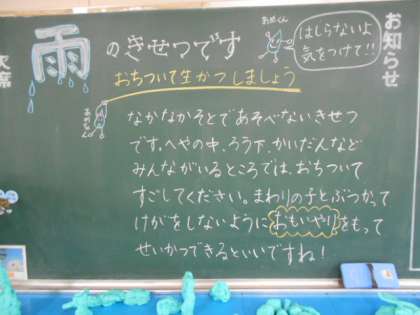 お知らせ
雨のきせつです
おちついて生かつしましょう
あめくん
はしらないよ
気をつけて!!
あめちゃん
なかなかそとであそべないきせつ
です。へやの中、ろう下、かいだんなど
みんながいるところでは、おちついて
すごしてください。まわりの子とぶつかって
けがをしないようにおもいやりをもって
せいかつできるといいですね!
欠席